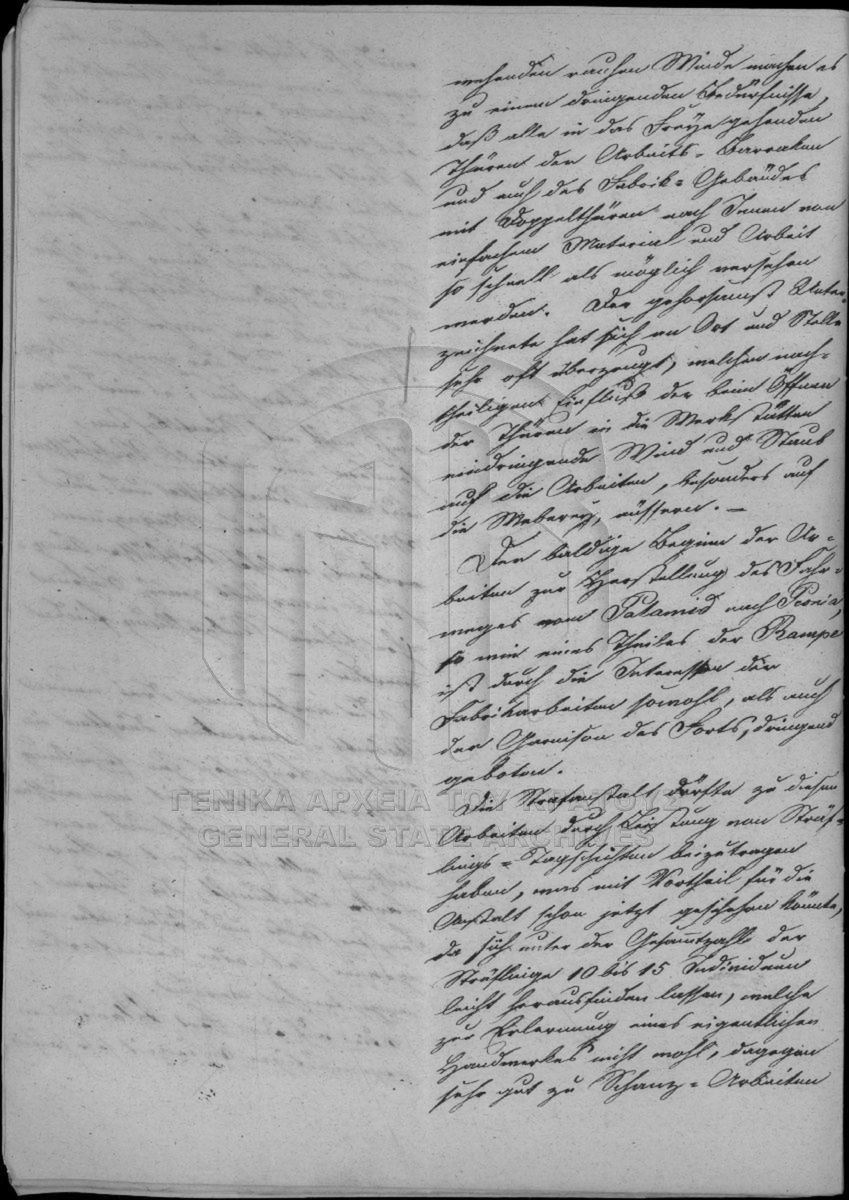 wehenden rauhen Winde machen es
zu einem dringenden Bedürfnisse,
daß alle in das Freye gehenden
Thüren der Arbeits-Barraken
und auch des Fabrik-Gebäudes
mit Doppelthüren nach Innen von
einfachem Material und Arbeit
so schnell als möglich versehen
werden. Der gehorsamst Unter-
zeichnete hat sich an Ort und Stelle
sehr oft überzeugt, welchen nach-
theiligen Einfluß der beim Öffnen
der Thüren in die Werkstätten
eindringende Wind und Staub
auf die Arbeiten, besonders auf
die Weberey, äussern. —
Der baldige Beginn der Ar-
beiten zur Herstellung des Fahr-
weges vom Palamid nach Pronia,
so wie eines Theiles der Rampe
ist durch die Interessen der
Fabrikarbeiten sowohl, als auch
der Garnison des Forts, dringend
geboten.
Die Strafanstalt dürfte zu diesen
Arbeiten durch Leistung von Sträf-
lings-Tagschichten beizutragen
haben, was mit Vortheil für die
Anstalt schon jetzt geschehen könnte,
da sich unter der Gesammtzahl der
Sträflinge 10 bis 15 Individuen
leicht herausfinden lassen, welche
zur Erlernung eines eigentlichen
Handwerkes nicht wohl, dagegen
sehr gut zu Schanz-Arbeiten
ΓΕΝΙΚΑ ΑΡΧΕΙΑ ΤΟΥ ΚΡΑΤΟΥΣ
GENERAL STATE ARCHIVES